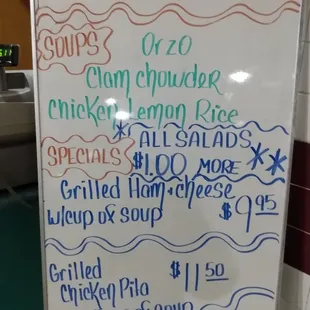 SOUPS
Orzo
Clam chowder
chicken Lemon Rice
* ALL SALADS
SPECIALS
$1.00 MORE **
Grilled Ham + cheese
w/cup of soup $9 95
Grilled $11 50
Chicken Pita
soup